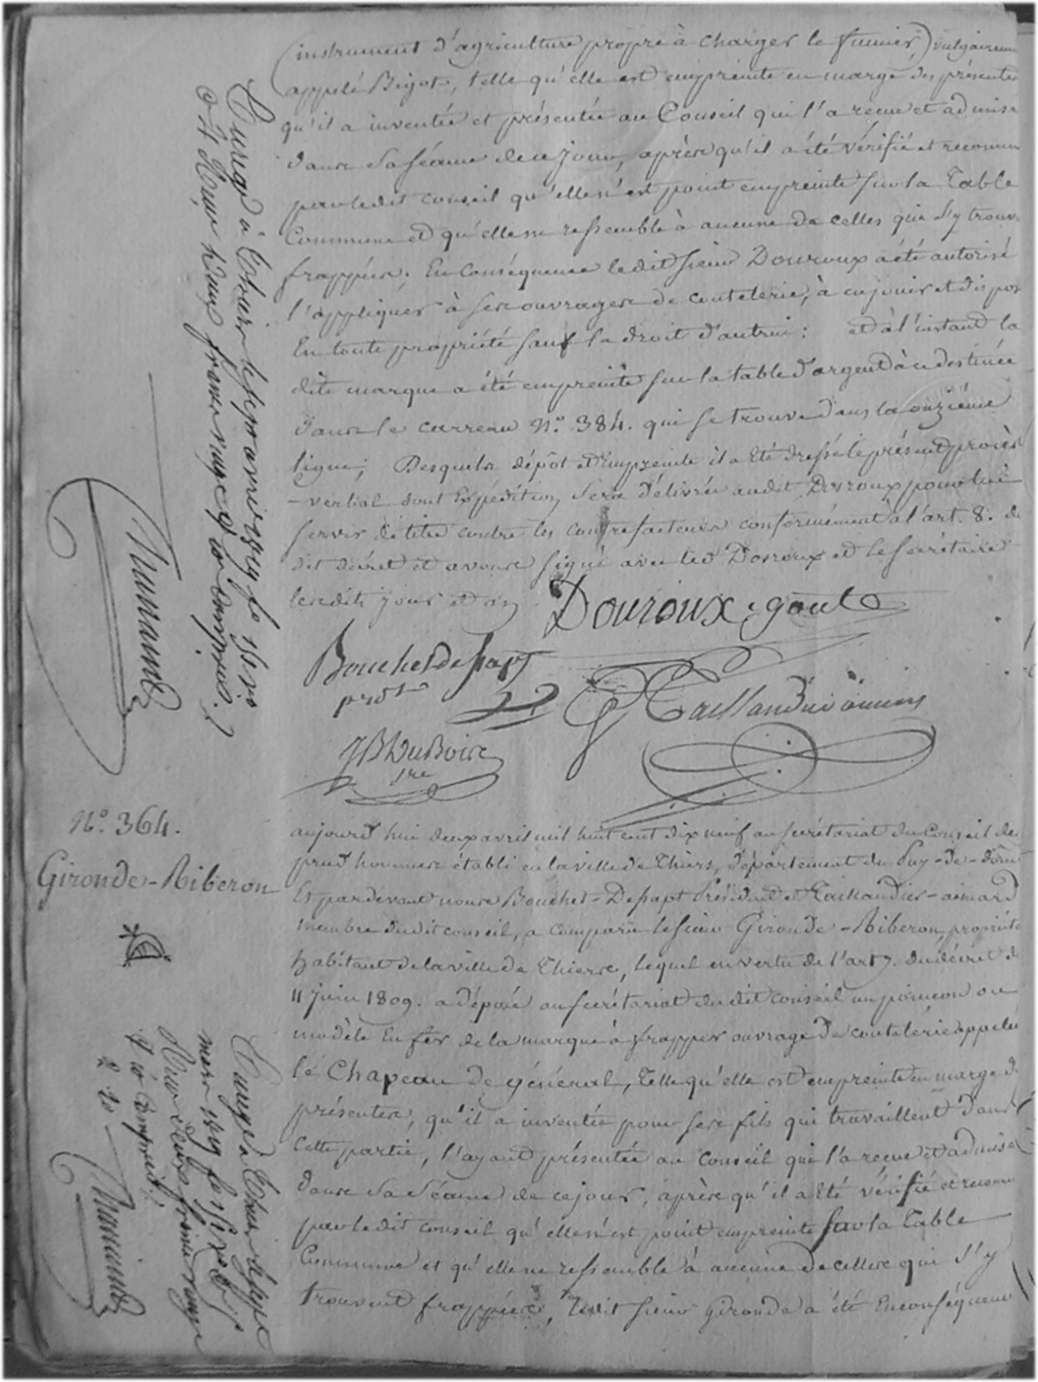 (instrument d'agriculture propre à charger le fumier,) vulgairement
appelé Bigot, telle qu'elle est empreinte en marge des présentes
qu'il a inventée et présentée au Conseil qui l'a recue et admise
dans sa séance de ce jour, après qu'il a été vérifié et reconnu
par le dit conseil qu'elle n'est point empreinte sur la Table
Commune et qu'elle ne ressemble à aucune de celles qui s'y trouv
frappées; En conséquence le dit sieur Douroux a été autorisé
l'appliquer à ses ouvrages de coutelerie, à en jouir et dispos
En toute propriété sauf le droit d'autrui: et à l'instant la
dite marque a été empreinte sur la table d'argent à ce destinée
dans le carreau N.º 384. qui se trouve dans la onzième
ligne; Desquels dépôt et Empreinte il a été dressé le présent procès
-verbal dont Expédition sera délivrée audit Douroux pour lui
servir de titre contre les contrefacteurs conformément à l'art. 8. du
dit décret et avons signé avec led Douroux et le secrétaire
lesdits jour et an
Douroux goute
Bouchet Depapt
prdt
Taillandier aimard
JB DuBois
sre
Enregé à Thiers le
Reçu deux francs vingt c.
N.º 364.
Gironde-Riberon
aujourd'hui deux avril mil huit cent dix neuf au secrétariat du Conseil de
prud'hommes établi en la ville de Thiers, département du Puy-de-Dôme
Et pardevant nous Bouchet-Depapt Président et Taillandier-aimard
membre dudit conseil, a comparu le sieur Gironde-Riberon, propriéte
habitant de la ville de Thiers, lequel en vertu de l'art 7. du décret du
11 juin 1809. a déposé au secrétariat du dit conseil un poincon ou
modèle En fer de la marque à frapper ouvrage de coutelerie appelée
le Chapeau de général, telle qu'elle est empreinte en marge d
présentes, qu'il a inventée pour ses fils qui travaillent dans
cette partie, l'ayant présentée au conseil qui l'a recue et admise
dans sa séance de ce jour, après qu'il a été vérifié et reconnu
par le dit conseil qu'elle n'est point empreinte sur la Table
Commune et qu'elle ne ressemble à aucune de celles qui s'y
trouvent frappées, ledit sieur Gironde a été Enconséquence